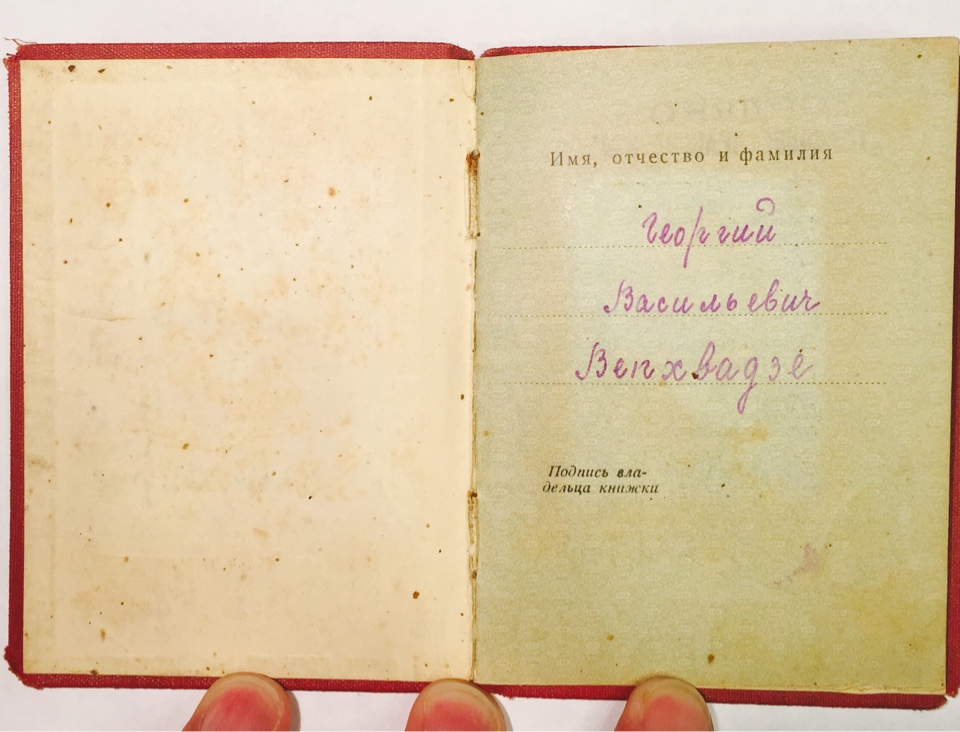 Имя, отчество и фамилия
Георгий
Васильевич
Вепхвадзе
Подпись вла-
дельца книжки